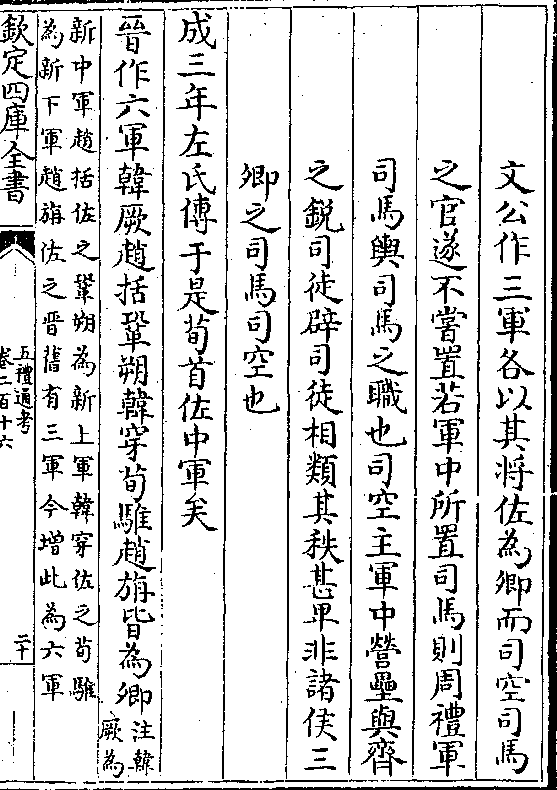 文公作三軍各以其將佐為卿而司空司馬
之官遂不嘗置若軍中所置司馬則周禮軍
司馬輿司馬之職也司空主軍中營壘與齊
之銳司徒辟司徒相類其秩甚卑非諸侯三
卿之司馬司空也
成三年左氏傳于是荀首佐中軍矣
晉作六軍韓厥趙括鞏朔韓穿荀騅趙旃皆為卿
注韓
厥為
新中軍趙括佐之鞏朔為新上軍韓穿佐之荀騅
為新下軍趙旃佐之晉舊有三軍今增此為六軍
欽定四庫全書
五禮通考
卷二百十六
二十